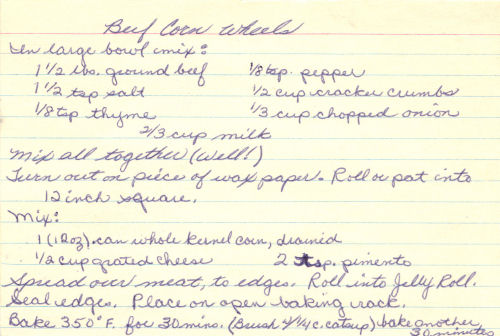 Beef Corn Wheels
In large bowl mix:
1 1/2 lbs. ground beef 1/8 tsp. pepper
1 1/2 tsp salt 1/2 cup cracker crumbs
1/8 tsp thyme 1/3 cup chopped onion
2/3 cup milk
Mix all together (Well!)
Turn out on piece of wax paper. Roll or pat into
12 inch square.
Mix:
1 (12oz). can whole kernel corn, drained
1/2 cup grated cheese 2 tsp. pimento
Spread over meat, to edges. Roll into Jelly Roll.
Seal edges. Place on open baking rack.
Bake 350° F. for 30 mins. (Brush w/ 1/4 c. catsup) bake another
30 minutes